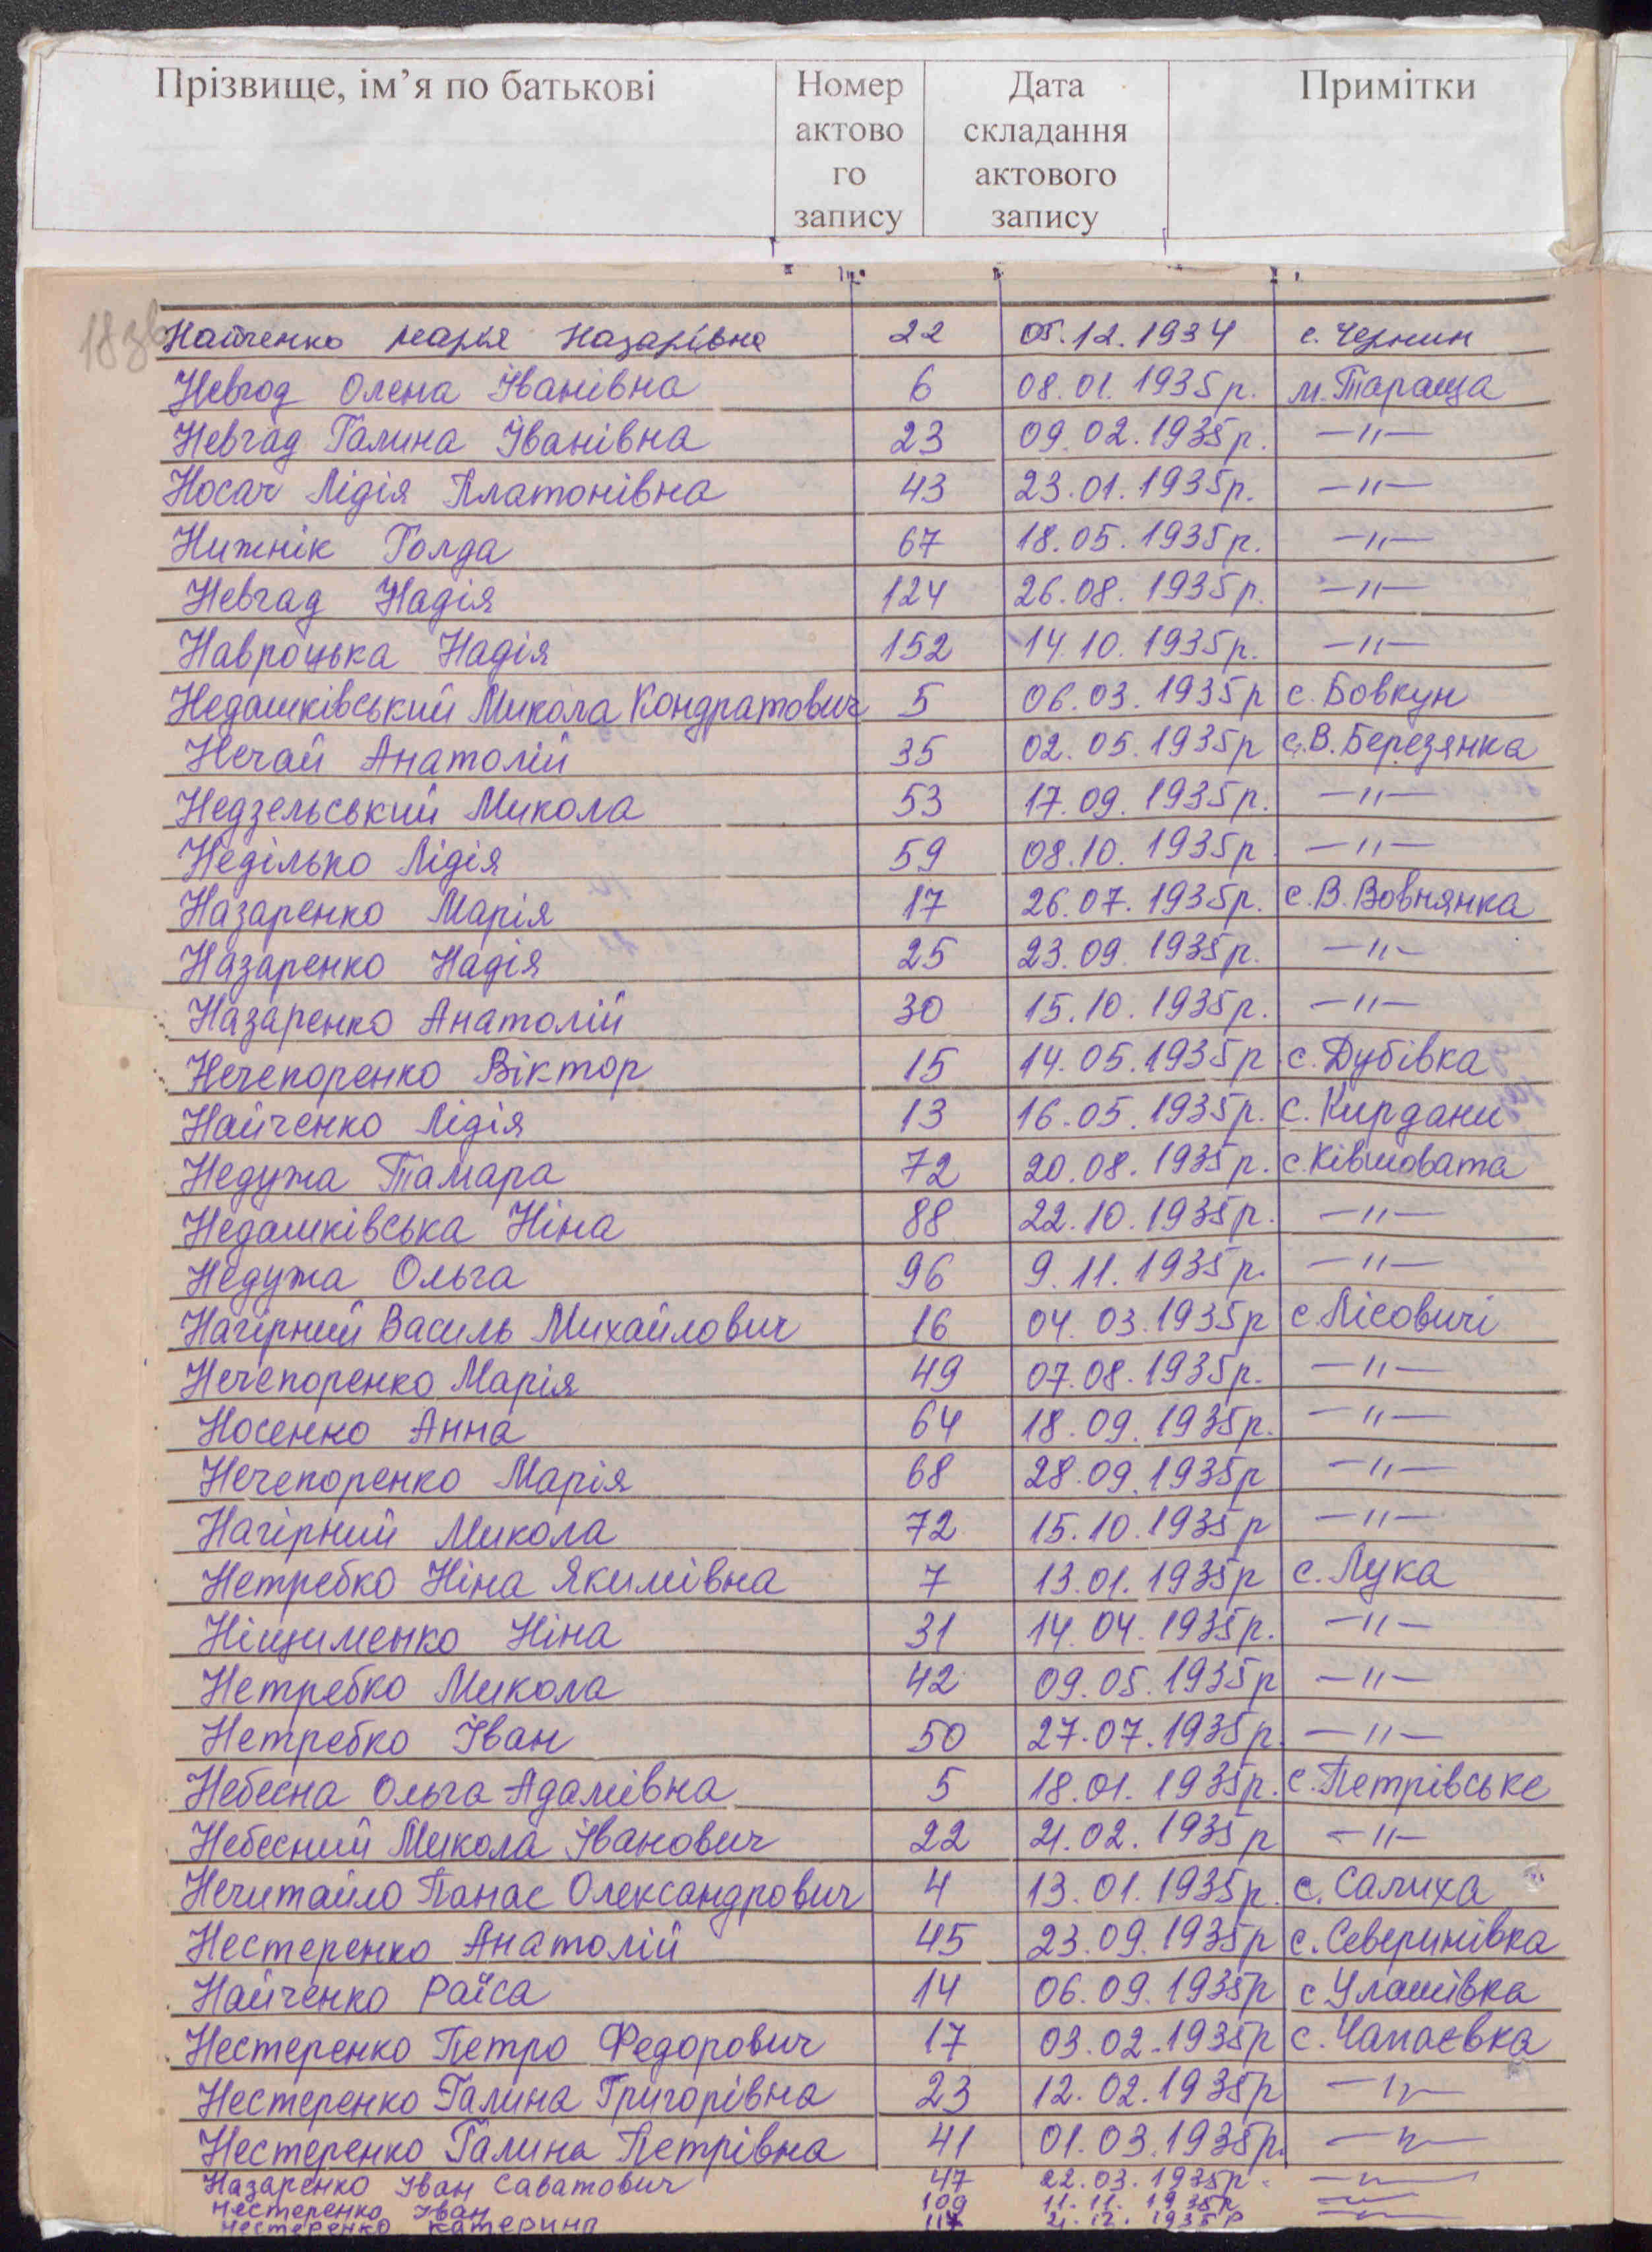 Прізвище, ім’я по батькові Номер актово го запису Дата складання актового запису Примітки
183в
Найченко Марія Назарівна 22 05.12.1934 с. Чернин
Невгод Олена Іванівна 6 08.01.1935р. м. Тараща
Невгад Галина Іванівна 23 09.02.1935р. —"—
Носач Лідія Платонівна 43 23.01.1935р. —"—
Нижнік Голда 67 18.05.1935р. —"—
Невгад Надія 124 26.08.1935р. —"—
Навроцька Надія 152 14.10.1935р. —"—
Недашківський Микола Кондратович 5 06.03.1935р с. Бовкун
Нечай Анатолій 35 02.05.1935р с.В.Березянка
Недзельський Микола 53 17.09.1935р. —"—
Неділько Лідія 59 08.10.1935р. —"—
Назаренко Марія 17 26.07.1935р. с.В.Вовнянка
Назаренко Надія 25 23.09.1935р. —"—
Назаренко Анатолій 30 15.10.1935р. —"—
Нечепоренко Віктор 15 14.05.1935р с. Дубівка
Найченко Лідія 13 16.05.1935р. с. Кирдани
Недужа Тамара 72 20.08.1935р. с.Ківшовата
Недашківська Ніна 88 22.10.1935р. —"—
Недужа Ольга 96 9.11.1935р. —"—
Нагірний Василь Михайлович 16 04.03.1935р с.Лісовичі
Нечепоренко Марія 49 07.08.1935р. —"—
Носенко Анна 64 18.09.1935р. —"—
Нечепоренко Марія 68 28.09.1935р —"—
Нагірний Микола 72 15.10.1935р —"—
Нетребко Ніна Якимівна 7 13.01.1935р с. Лука
Ніщименко Ніна 31 14.04.1935р. —"—
Нетребко Микола 42 09.05.1935р —"—
Нетребко Іван 50 27.07.1935р. —"—
Небесна Ольга Адамівна 5 18.01.1935р. с.Петрівське
Небесний Микола Іванович 22 21.02.1935р —"—
Нечитайло Панас Олександрович 4 13.01.1935р. с. Салиха
Нестеренко Анатолій 45 23.09.1935р с. Северинівка
Найченко Раїса 14 06.09.1935р с Улашівка
Нестеренко Петро Федорович 17 03.02.1935р с. Чапаєвка
Нестеренко Галина Григорівна 23 12.02.1935р —"—
Нестеренко Галина Петрівна 41 01.03.1935р. —"—
Назаренко Іван Саватович 47 22.03.1935р. —"—
Нестеренко Іван 109 11.11.1935р —"—
Нестеренко Катерина 117 21.12.1935р —"—